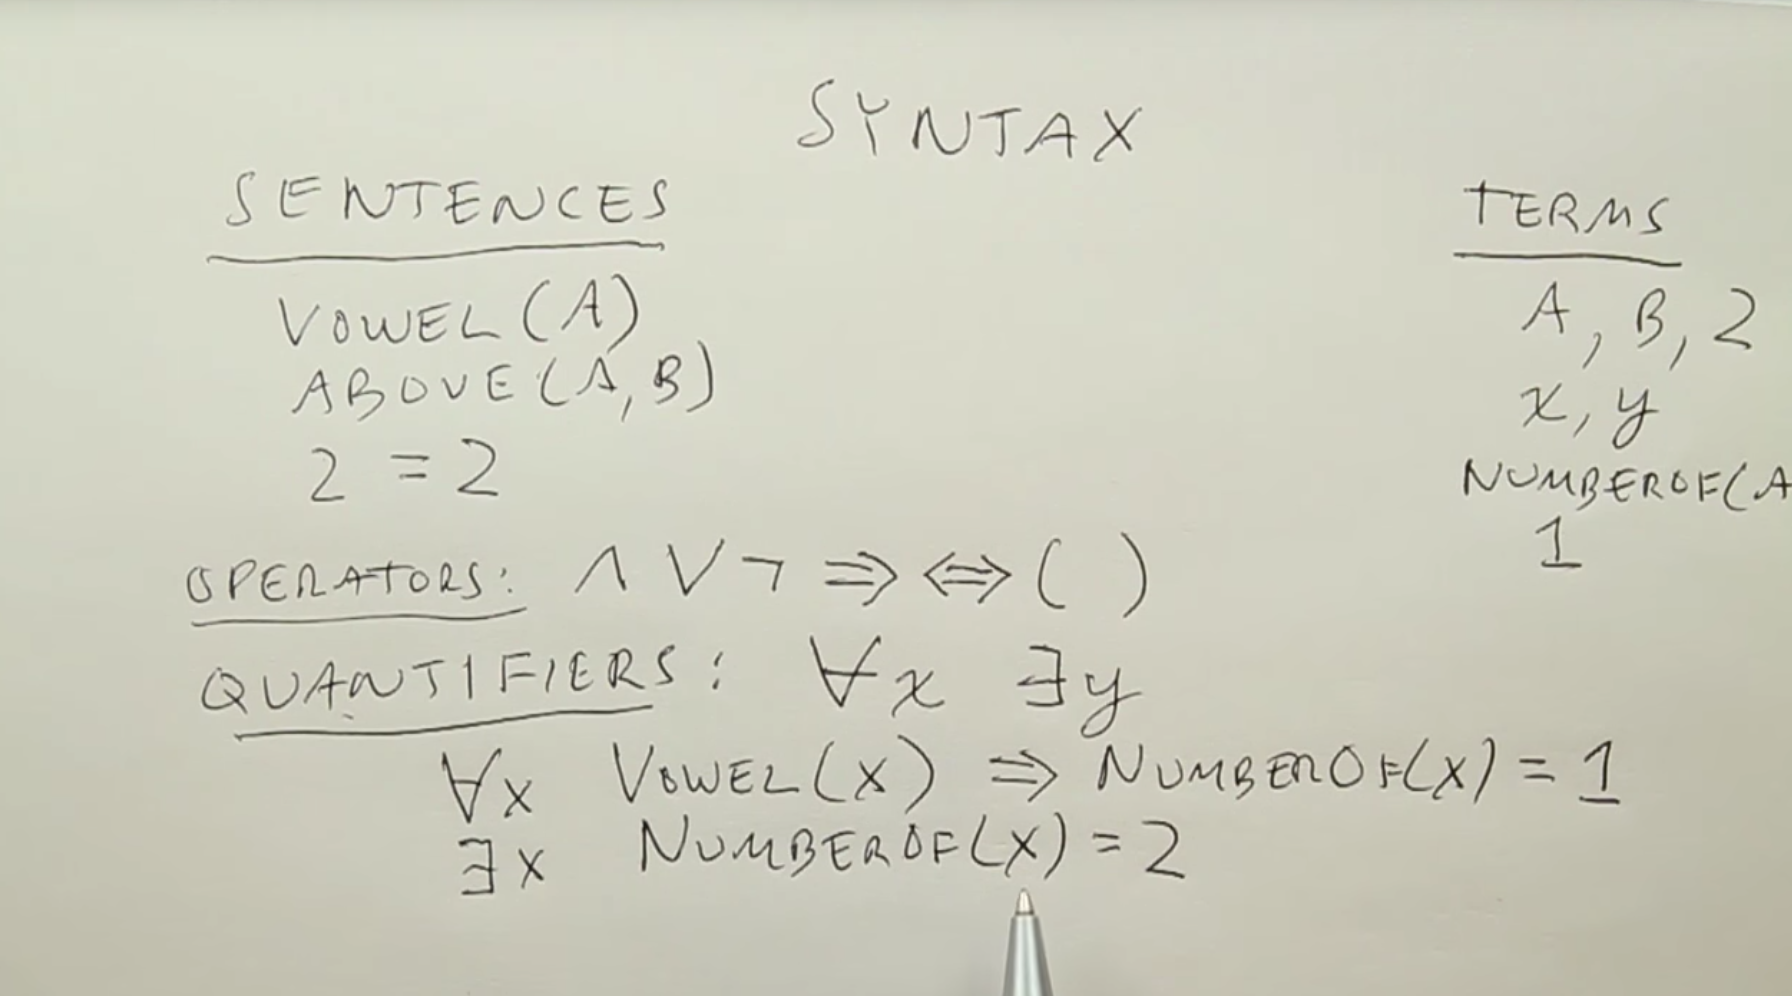 SYNTAX
SENTENCES
VOWEL(A)
ABOVE(A,B)
2 = 2
TERMS
A, B, 2
x, y
NUMBEROF(A
1
OPERATORS: ∧ ∨ ¬ ⇒ ⇔ ( )
QUANTIFIERS: ∀x ∃y
∀x VOWEL(x) ⇒ NUMBEROF(x) = 1
∃x NUMBEROF(x) = 2